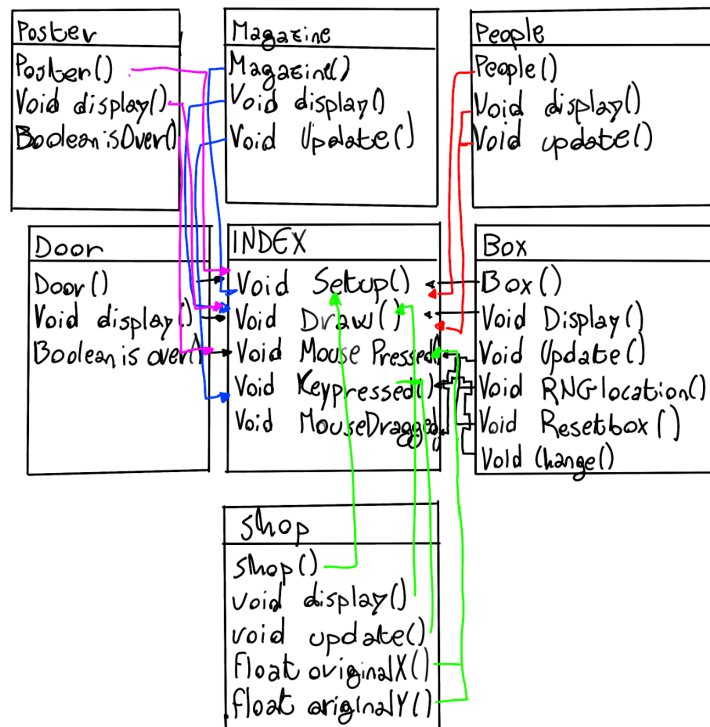 Poster
Poster()
Void display()
Boolean isOver()
Magazine
Magazine()
Void display()
Void Update()
People
People()
Void display()
Void update()
Door
Door()
Void display()
Boolean is over()
INDEX
Void Setup()
Void Draw()
Void Mouse Pressed()
Void Keypressed()
Void MouseDragged
Box
Box()
Void Display()
Void Update()
Void RNGlocation()
Void Resetbox()
Void Change()
Shop
Shop()
void display()
void update()
float originalX()
float originalY()